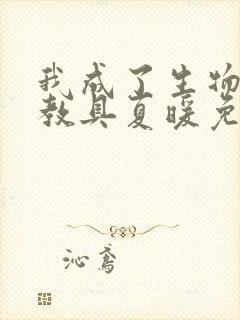 我成了生物
教具夏暖免
沁鸢